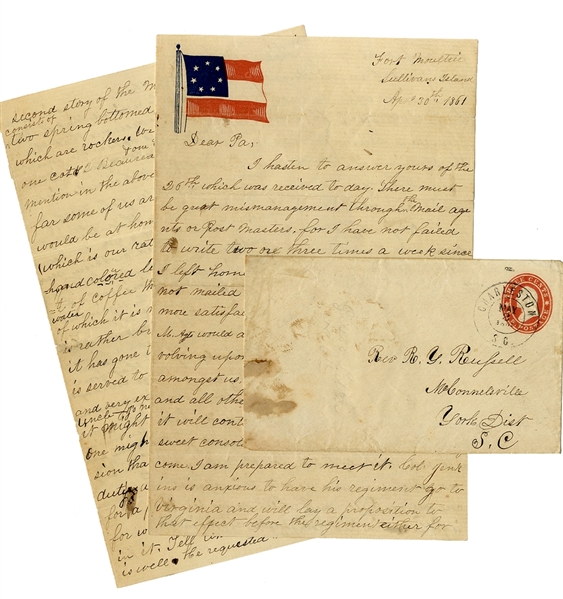 Fort Moultrie
Sullivans Island
Apr 30th, 1861
Dear Pa,
I hasten to answer yours of the
26th which was received to day. There must
be great mismanagement through th Mail age
nts or Post Masters, for I have not failed
to write two ore three times a week since
I left hom
not mailed
more satisfa
would a
volving upon
amongst us,
and all othe
it will cont
sweet consol
come. I am prepared to meet it. Col Jenk
ins is anxious to have his regiment go to
Virginia and will lay a proposition to
that effect before the regiment either for
second story of the M
consists of
two spring bottomed
which are rockers. We
one cot
mention in the above
far some of us ar
would be at hom
(which is our rat
hand colored be
of coffee th
water
of which it is m
is rather b
it has gone
is served to
and very ex
it might
One might
sion tha
duty
for a
for w
in it. Tell
is well. he requested
CHARLESTON
S.C.
Rev. R. Y. Russell
McConnelsville
York Dist
S. C